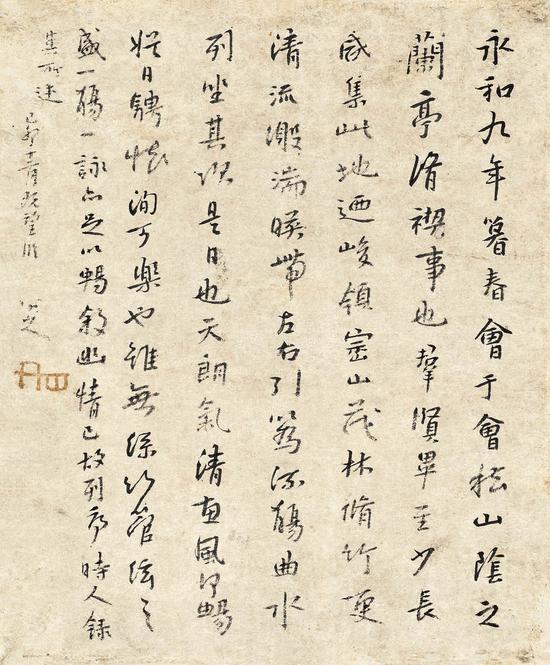 永和九年暮春會于會稽山陰之
蘭亭脩禊事也羣賢畢至少長
咸集此地迺峻領崇山茂林脩竹更
清流激湍暎帶左右引爲流觴曲水
列坐其次是日也天朗氣清惠風和暢
娛目騁懷洵可樂也雖無絲竹管弦之
盛一觴一詠亦足以暢敘幽情已故列序時人錄
其所述
既望臨
八大山人